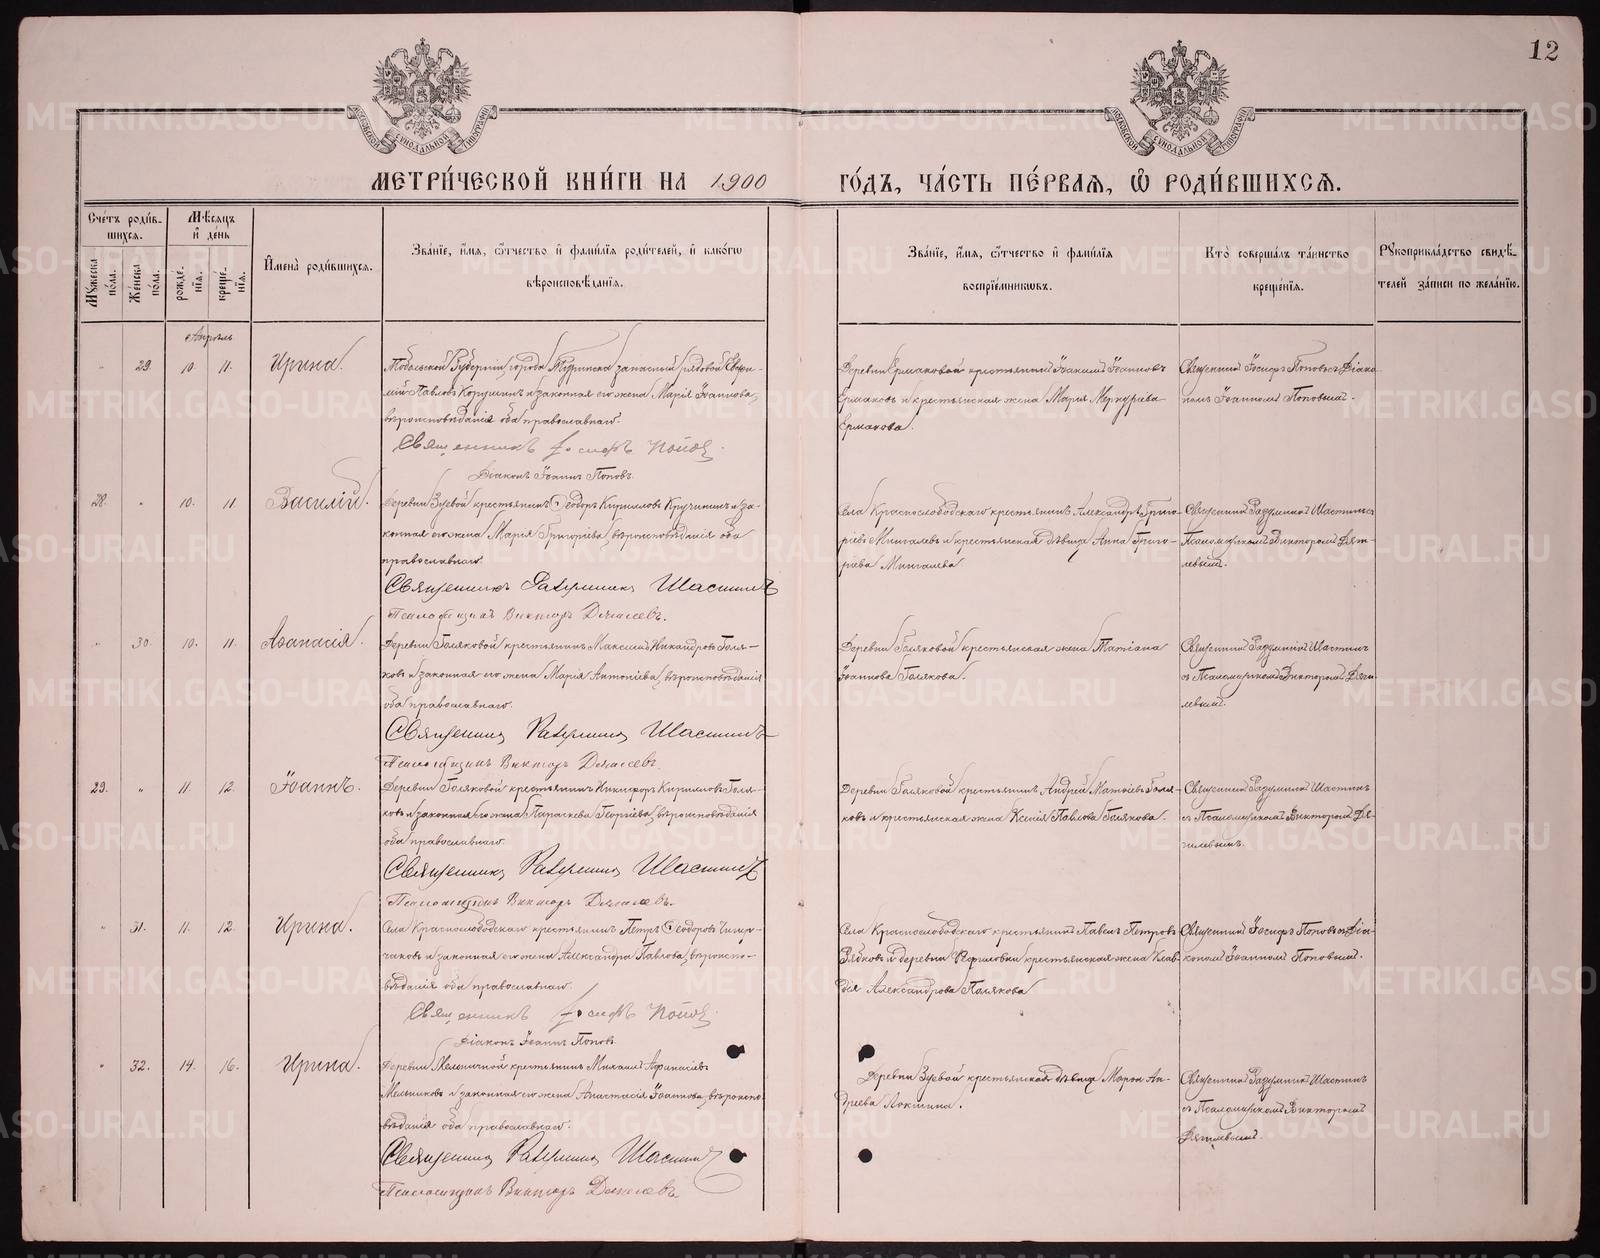 12
МОСКОВСКОЙ СѴНОДАЛЬНОЙ ТИПОГРАФІИ
МОСКОВСКОЙ СѴНОДАЛЬНОЙ ТИПОГРАФІИ
МЕТРИ́ЧЕСКОЙ КНИ́ГИ НА 1900 ГО́ДЪ, ЧА́СТЬ ПЕ́РВАѦ, Ѡ҆ РОДИ́ВШИХСѦ.
Сче́тъ роди́в-
шихсѧ.
Мꙋ́жеска по́ла.
Же́нска по́ла.
Мѣ́сѧцъ и҆ де́нь
рожде́нїѧ.
креще́нїѧ.
И҆мена̀ роди́вшихсѧ.
Зва́нїе, и҆́мѧ, ѻ҆́тчество и҆ фами́лїѧ роди́телей, и҆ како́гѡ
вѣроисповѣ́данїѧ.
Зва́нїе, и҆́мѧ, ѻ҆́тчество и҆ фами́лїѧ
воспрїе́мникѡвъ.
Кто̀ соверша́лъ та́инство
креще́нїѧ.
Рꙋкоприкла́дство свидѣ́-
телей за́писи по жела́нїю.
Апрѣль
" 29. 10. 11. Ирина.
Тобольской Губерніи, города Туринска запасный рядовой Евфи-
мій Павловъ и законная его жена Марія Іоаннова,
вѣроисповѣданія оба православнаго.
Священникъ Іосифъ Попов.
Діаконъ Іоаннъ Поповъ.
Деревни Ермаковой крестьянинъ Іоакимъ Іоанновъ
Ермаковъ и крестьянская жена Марія Меркурьева
Ермакова.
Священникъ Іосифъ Поповъ съ Діако-
номъ Іоанномъ Поповымъ.
28. " 10. 11. Василій.
Деревни Зуевой крестьянинъ Ѳеодоръ Кирилловъ и за-
конная его жена Марія Григорьева, вѣроисповѣданія оба
православнаго.
Священникъ Шастинъ
Псаломщикъ Викторъ
Села Краснослободскаго крестьянинъ Александръ Григо-
рьевъ Мингалевъ и крестьянская дѣвица Анна Григо-
рьева Мингалева.
Священникъ Шастинъ съ
Псаломщикомъ Викторомъ
" 30. 10. 11. Аѳанасія.
Деревни Голяковой крестьянинъ Максимъ Никандровъ Голя-
ковъ и законная его жена Марія Антоніева, вѣроисповѣданія
оба православнаго.
Священникъ Шастинъ
Псаломщикъ Викторъ
Деревни Голяковой крестьянская жена Татіана
Іоаннова Голякова.
Священникъ Шастинъ
съ Псаломщикомъ Викторомъ
29. " 11. 12. Іоаннъ.
Деревни Голяковой крестьянинъ Никифоръ Кирилловъ Голя-
ковъ и законная его жена Параскева Георгіева, вѣроисповѣданія
оба православнаго.
Священникъ Шастинъ
Псаломщикъ Викторъ
Деревни Голяковой крестьянинъ Андрей Матѳіевъ Голя-
ковъ и крестьянская жена Ксенія Павлова Голякова.
Священникъ Шастинъ
съ Псаломщикомъ Викторомъ
" 31. 11. 12. Ирина.
Села Краснослободскаго крестьянинъ Петръ Ѳеодоровъ
и законная его жена Александра Павлова, вѣроиспо-
вѣданія оба православнаго.
Священникъ Іосифъ Попов.
Діаконъ Іоаннъ Поповъ
Села Краснослободскаго крестьянинъ Павелъ Петровъ
и деревни крестьянская жена Клав-
дія Александрова Полякова
Священникъ Іосифъ Поповъ съ Діа-
кономъ Іоанномъ Поповымъ.
" 32. 14. 16. Ирина.
Деревни Мельничной крестьянинъ Михаилъ Аѳанасіевъ
Мельниковъ и законная его жена Анастасія Іоаннова, вѣроиспо-
вѣданія оба православнаго.
Священникъ Шастинъ
Псаломщикъ Викторъ
Деревни Зуевой крестьянская дѣвица Марія Ан-
дреева Локтина.
Священникъ Шастинъ
съ Псаломщикомъ Викторомъ
METRIKI.GASO-URAL.RU